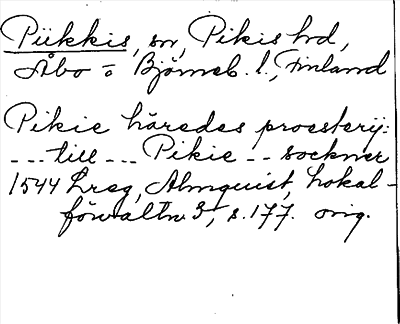 Piikkis, sn, Pikis hd,
Åbo o Björneb. l., Finland
Pikie häredes prosterij:
--- till --- Pikie -- sockner
1544 Lreg, Almquist, Lokal-
förvaltn 3, s. 177. orig.